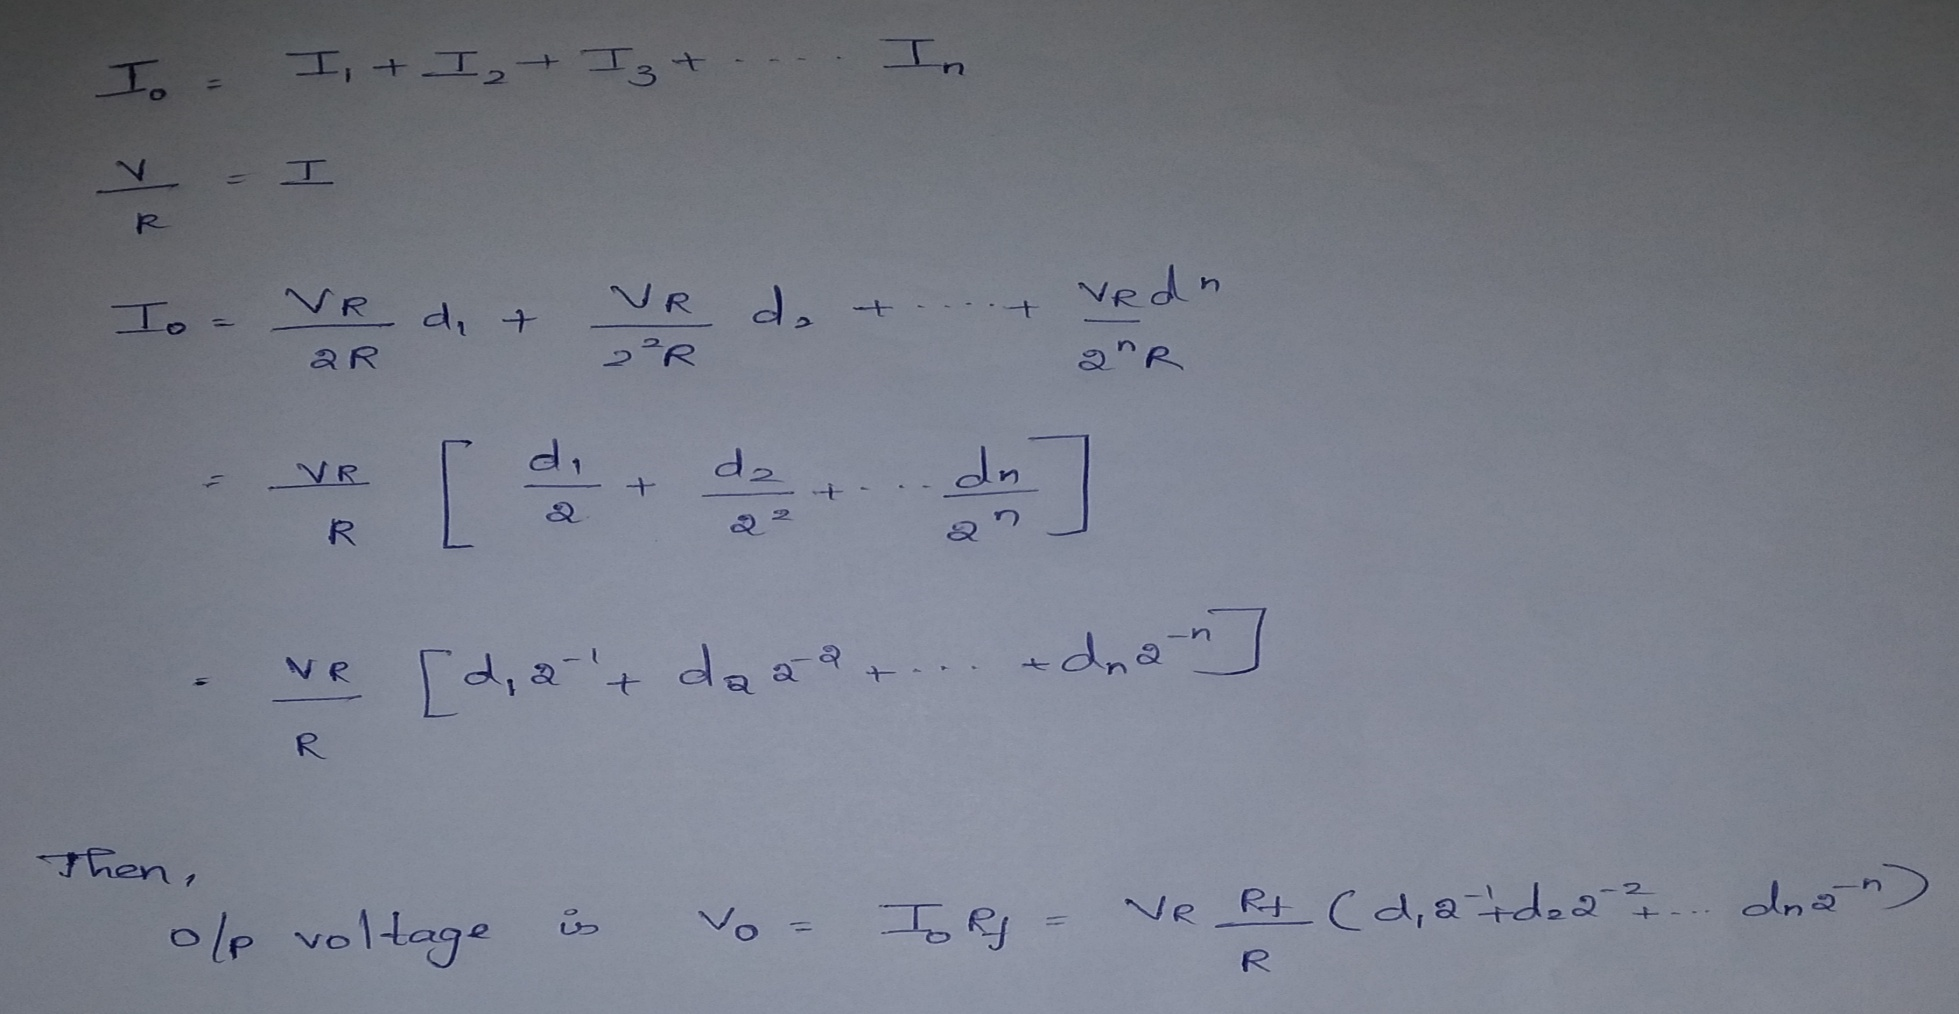 I₀ = I₁ + I₂ + I₃ + .... Iₙ
V/R = I
I₀ = VR/2R d₁ + VR/2²R d₂ + ....+ VR dn/2ⁿR
= VR/R [ d₁/2 + d₂/2² + ... dn/2ⁿ ]
= VR/R [d₁2⁻¹ + d₂2⁻² + ... + dn2⁻ⁿ]
Then,
o/p voltage is V₀ = I₀ Rf = VR Rf/R (d₁2⁻¹+d₂2⁻²+... dn2⁻ⁿ)